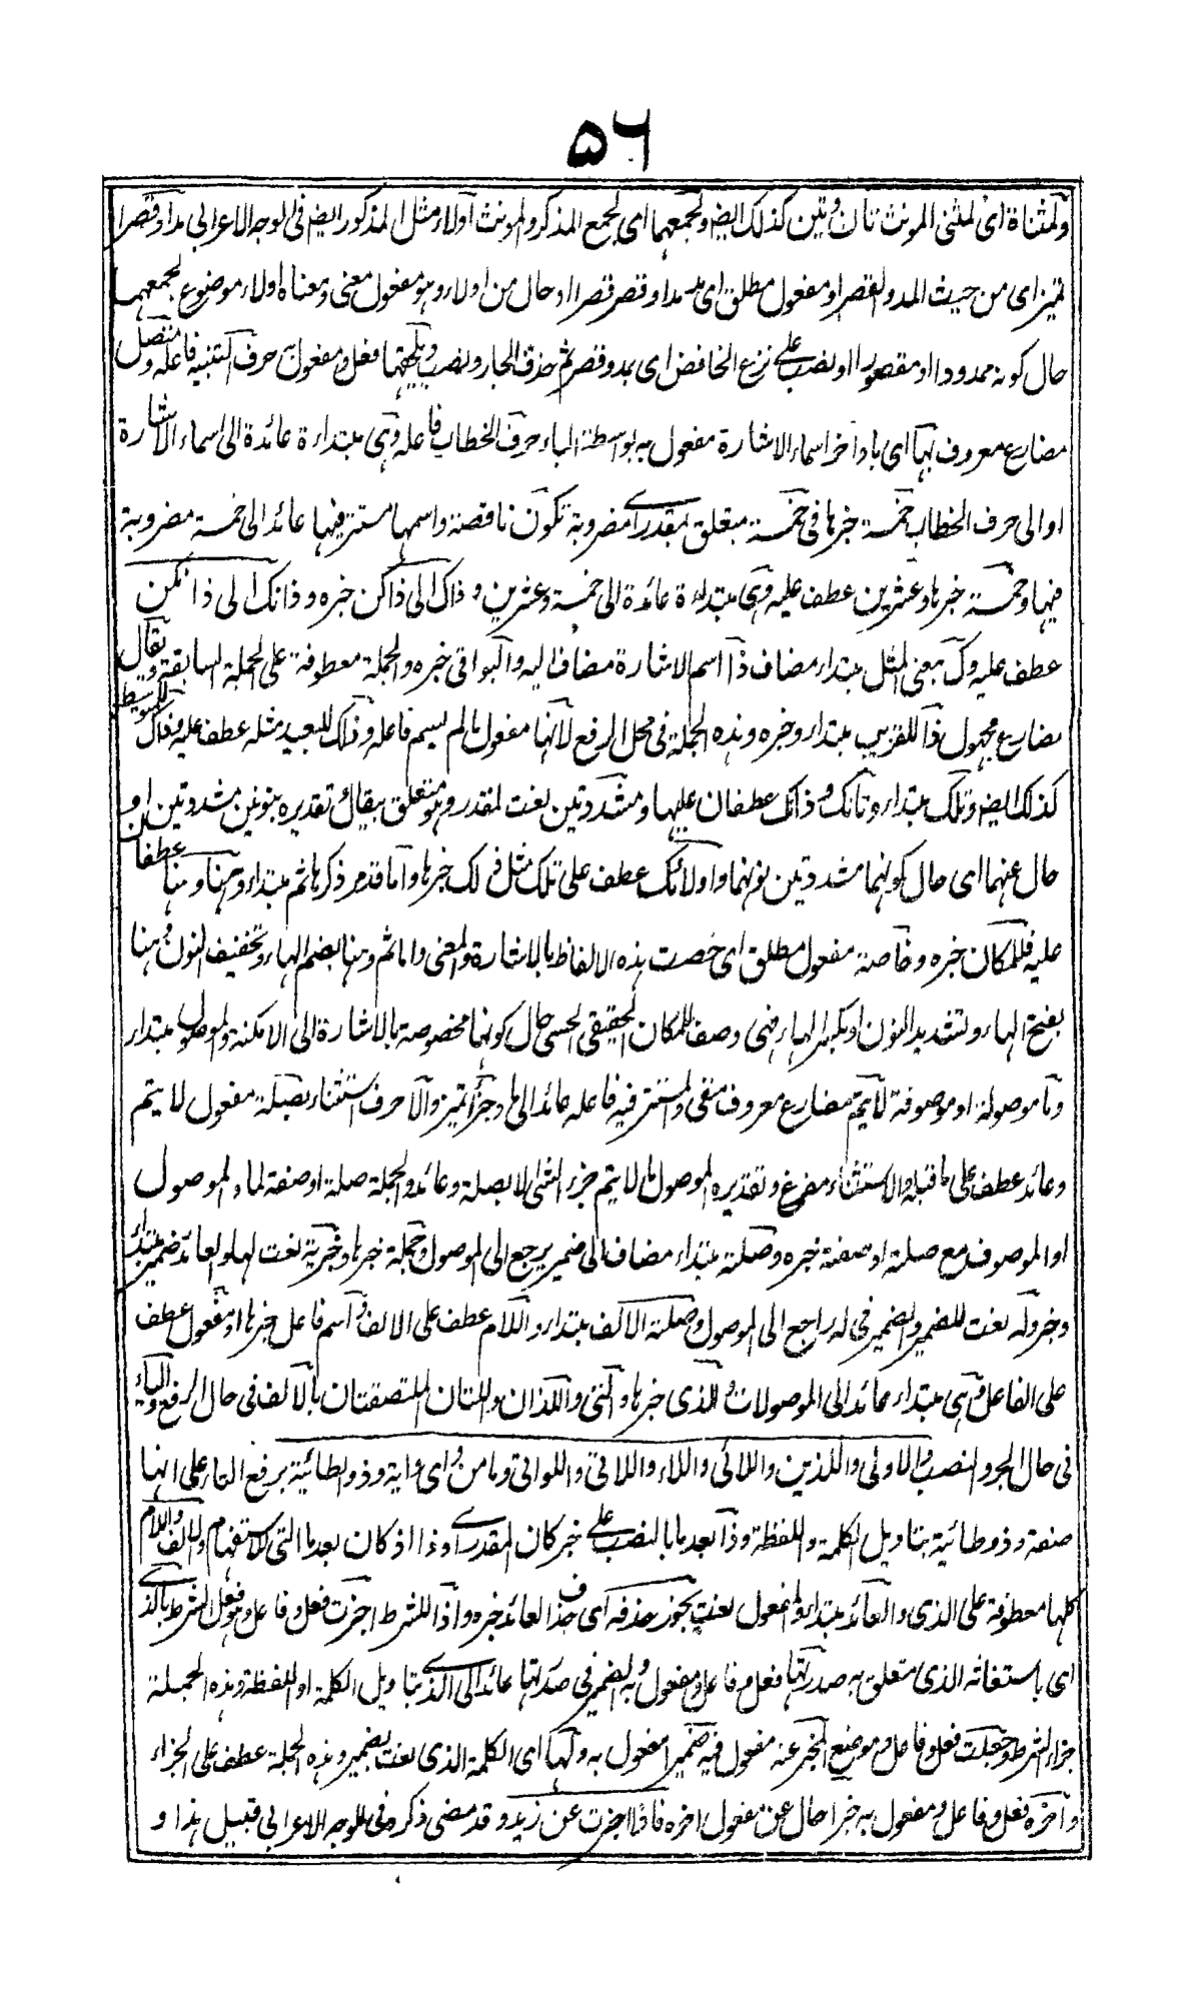 ٥٦
ولمثناة اى لمثنى المونث تان وتين كذلك ايض ولجمعهما اى لجمع المذكر والمونث اولاء مثل المذكور ايض فى الوجه الاعرابى مدا وقصرا
تميز اى من حيث المد والقصر او مفعول مطلق اى يمد مدا وقصر قصرا او حال من اولاء وهو مفعول معنى ومعناه اولاء موضوع لجمعهما
حال كونه ممدودا او مقصورا او نصب على نزع الخافض اى بمد وقصر ثم حذف الجار ونصب ويلحقها فعل ومفعول به حرف التنبيه فاعله ويتصل
مضارع معروف بها اى باواخر اسماء الاشارة مفعول به بواسطة الباء حرف الخطاب فاعله وهى مبتداء ة عائدة الى اسماء الاشارة
او الى حرف الخطاب خمسة خبرها فى خمسة متعلق بمقدر اى مضروبة تكون ناقصة واسمها مستتر فيها عائد الى خمسة مضروبة
فيها وخمسة خبرها وعشرين عطف عليه وهى مبتداء ة عائدة الى خمسة وعشرين و ذاك الى ذاكن خبره و ذانك الى ذانكن
عطف عليه وك بمعنى المثل مبتداء مضاف ذا اسم الاشارة مضاف اليه والبواقى خبره والجملة معطوفة على الجملة السابقة ويقال
مضارع مجهول ذا للقريب مبتداء وخبره وهذه الجملة فى محل الرفع لانها مفعول ما لم يسم فاعله وذلك للبعيد مثله عطف عليه وذاك للمتوسط
كذلك ايض وتلك مبتداء وتانك وذانك عطفان عليها ومشددتين نعت لمقدر وهو متعلق بيقال تقديره بنونين مشددتين او
حال عنهما اى حال كونهما مشددتين نونهما واولائك عطف على تلك مثل ذلك خبرها واما قد مر ذكرها ثم مبتداء وهنا وهنا عطفان
عليه فللمكان خبره وخاصة مفعول مطلق اى خصت هذه الالفاظ بالاشارة والمعنى واما ثم وهنا بضم الهاء وتخفيف النون وهنا
بفتح الهاء وتشديد النون او بكسر الهاء فهى وصف للمكان الحقيقى الحسى حال كونها مخصوصة بالاشارة الى الامكنة والموصول مبتداء
وما موصولة او موصوفة لا يتم مضارع معروف منفى والمستتر فيه فاعله عائد الى ما وجزأ تميز والا حرف استثناء بصلة مفعول لا يتم
وعائد عطف على ما قبله والاستثناء مفرغ وتقديره الموصول ما لا يتم جزء الشئ الا بصلة وعائد والجملة صلة او صفة لما والموصول
او الموصوف مع صلته او صفته خبره وصلته مبتداء مضاف الى ضمير يرجع الى الموصول وجملة خبرها وخبرية نعت لها والعائد ضمير مبتداء
وخبر وله نعت للضمير والضمير فى له راجع الى الموصول وصلة الالف مبتداء واللام عطف على الالف واسم فاعل خبرها او مفعول عطف
على الفاعل وهى مبتداء عائد الى الموصولات والذى خبرها والتى واللذان واللتان الملتصقتان بالالف فى حال الرفع والياء
فى حال الجر والنصب والاولى واللذين واللائى واللاء واللاتى واللواتى وما من واى واية وذو الطائية برفع التاء على انها
صفة وذو طائية بتاويل الكلمة واللفظة وذا بعد ما بالنصب على خبر كان المقدر اى وذا اذ كان بعد ما التى للاستفهام والالف واللام
كلها معطوفة على الذى والعائد مبتداء والمفعول نعت يجوز حذفه اى حذف العائد خبره واذا للشرط اخبرت فعل وفاعل وهو فعل الشرط بالذى
اى باستغاثة الذى متعلق به صدرتها فعل وفاعل ومفعول به والضمير فى صدرتها عائد الى الذى بتاويل الكلمة او اللفظة وهذه الجملة
جزاء الشرط وجعلت فعل وفاعل وموضع المخبر عنه مفعول فيه ضميرا مفعول به ولها اى الكلمة الذى نعت لضمير وهذه الجملة عطف على الجزاء
واخره فعل وفاعل ومفعول به خبرا حال عن مفعول اخره فاذا اخبرت عن زيد وقد مضى ذكره فى الوجه الاعرابى قبيل هذا و